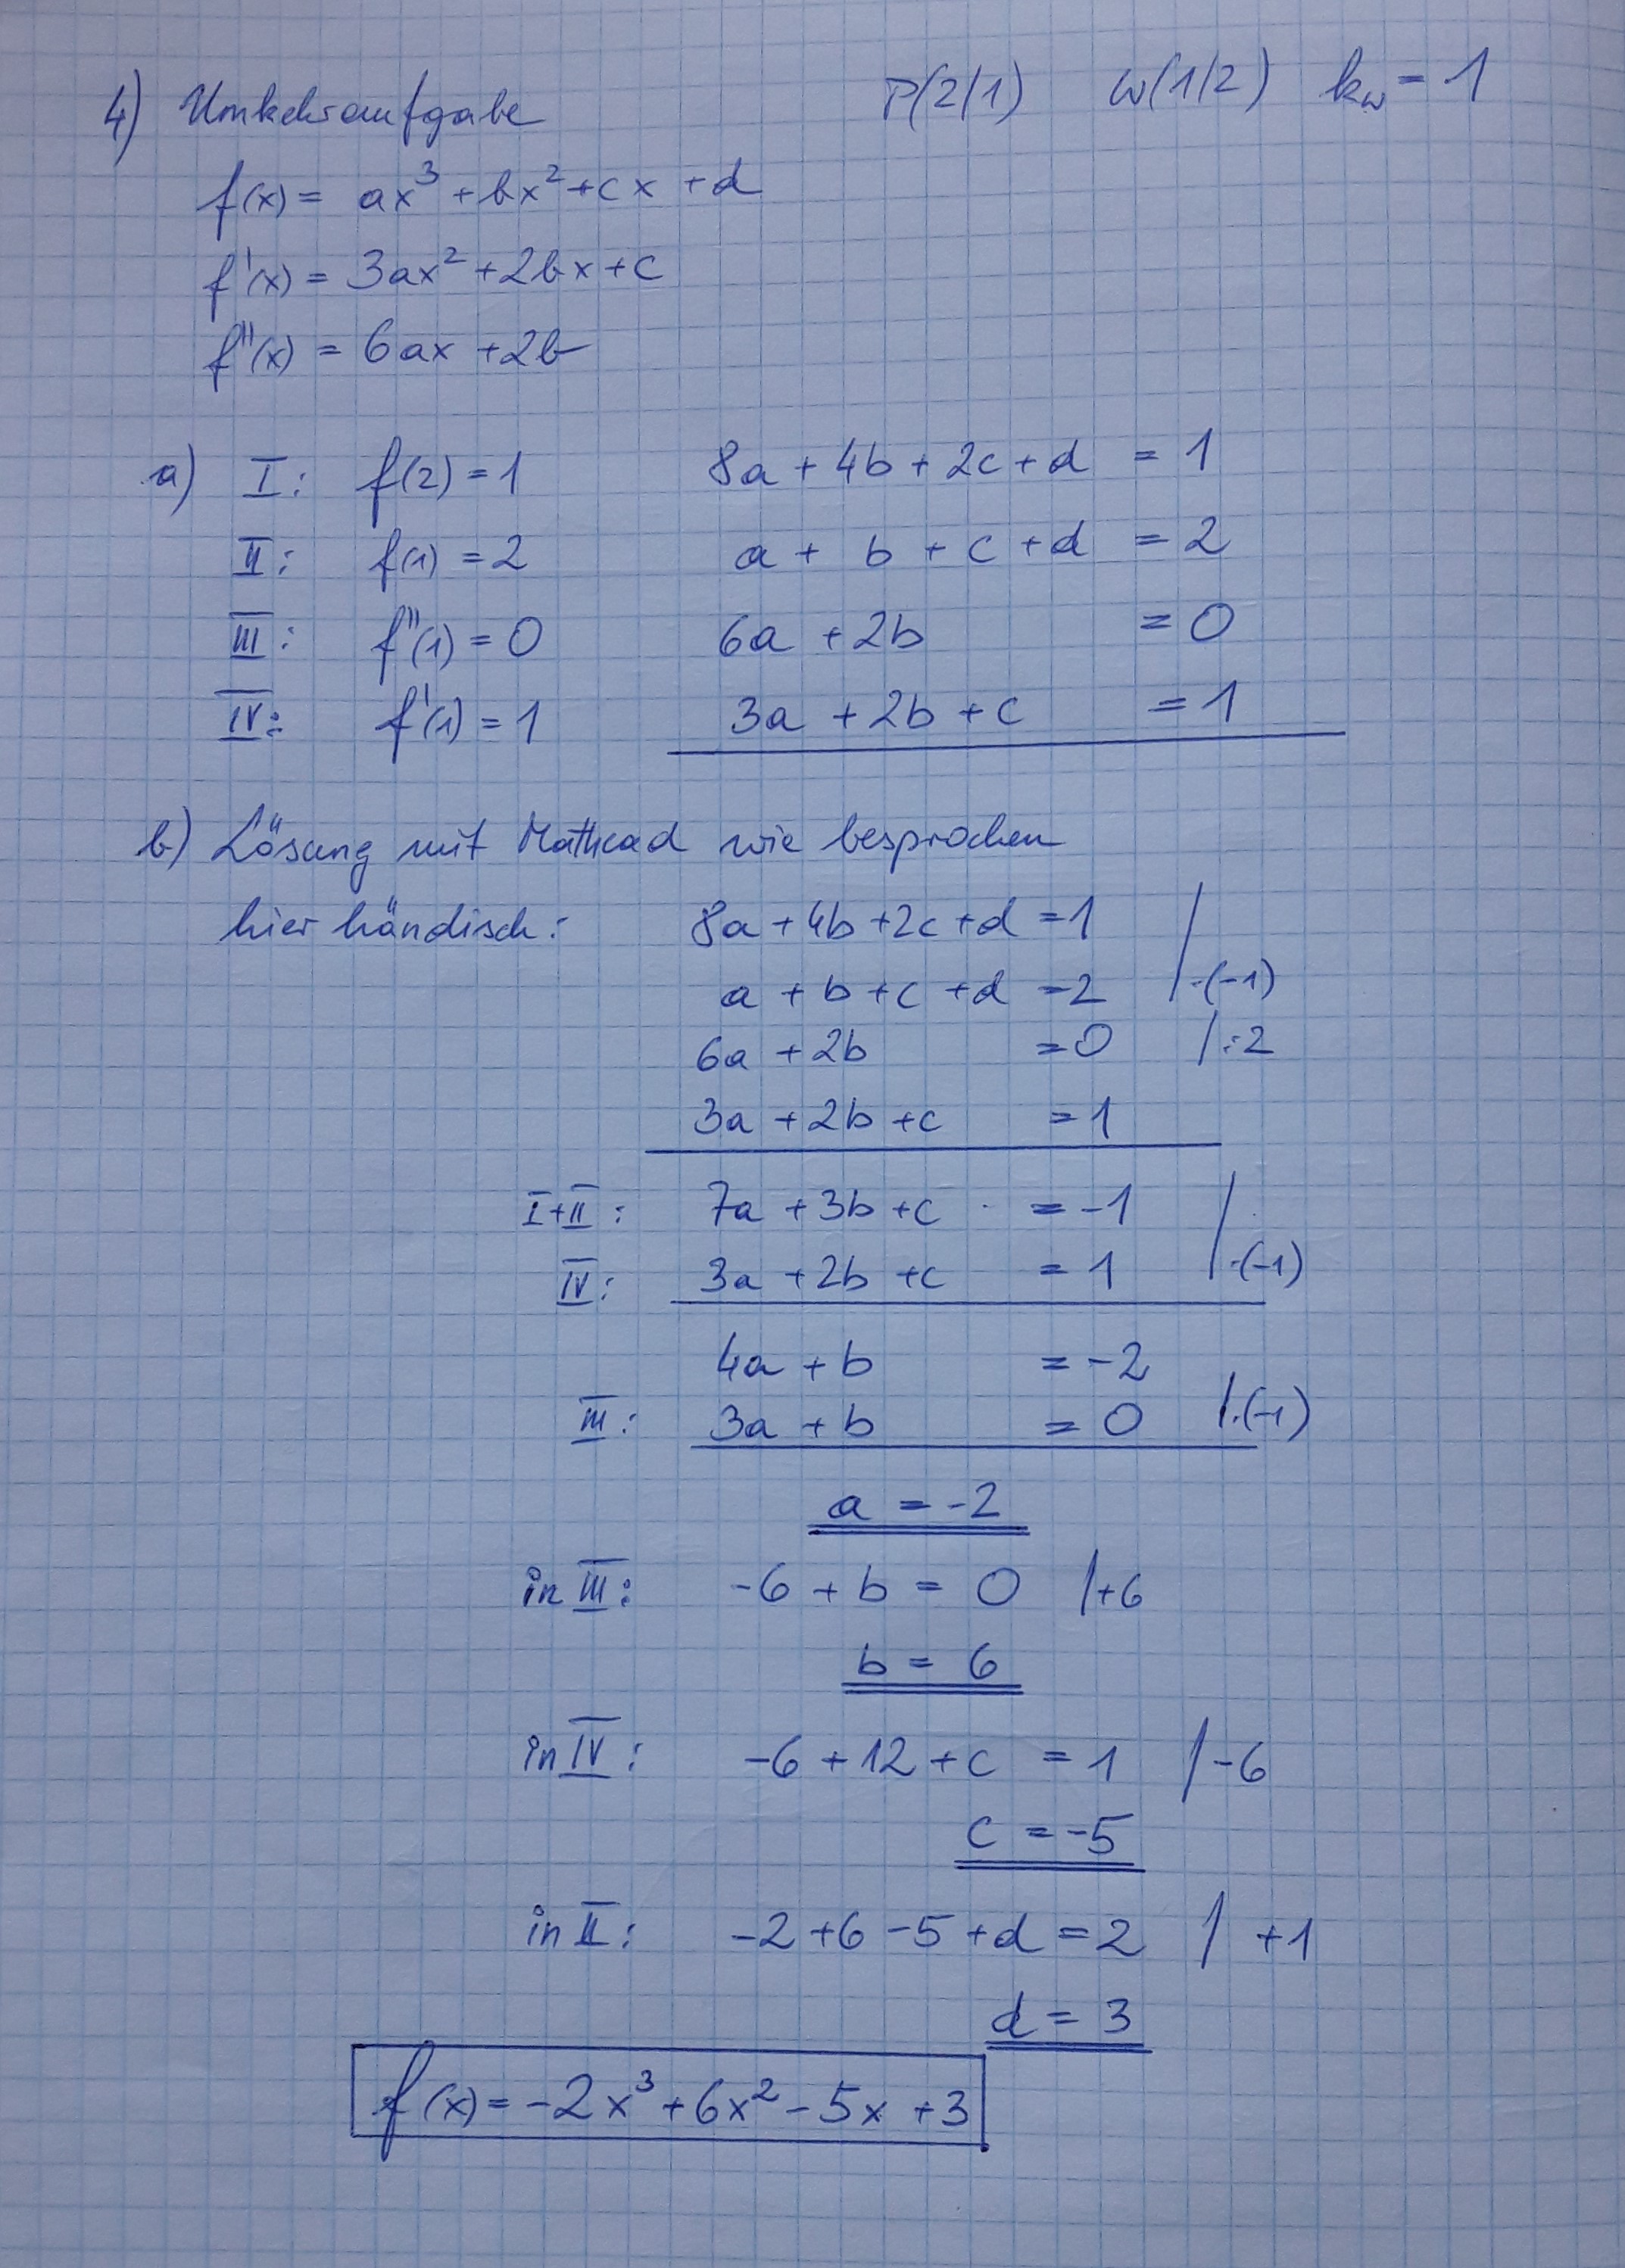 4) Umkehraufgabe P(2/1) W(1/2) kw = 1
f(x) = ax³ + bx² + cx + d
f'(x) = 3ax² + 2bx + c
f''(x) = 6ax + 2b
a) I: f(2) = 1 8a + 4b + 2c + d = 1
II: f(1) = 2 a + b + c + d = 2
III: f''(1) = 0 6a + 2b = 0
IV: f'(1) = 1 3a + 2b + c = 1
b) Lösung mit Mathcad wie besprochen
hier händisch: 8a + 4b + 2c + d = 1 /
a + b + c + d = 2 / ·(-1)
6a + 2b = 0 / :2
3a + 2b + c = 1
I+II: 7a + 3b + c = -1 /
IV: 3a + 2b + c = 1 / ·(-1)
4a + b = -2
III: 3a + b = 0 /·(-1)
a = -2
in III: -6 + b = 0 /+6
b = 6
in IV: -6 + 12 + c = 1 /-6
c = -5
in II: -2 + 6 - 5 + d = 2 / +1
d = 3
f(x) = -2x³ + 6x² - 5x + 3